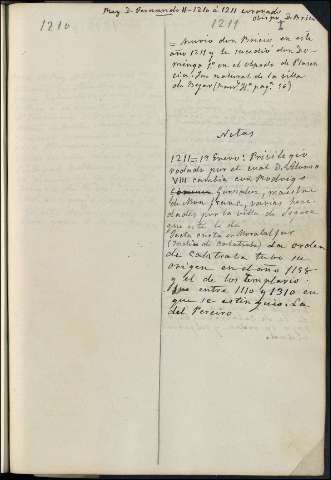 Rey D. Fernando II - 1210 á 1211 coronado
1210
1211
obispo D. Bricio
= Murió don Bricio en este
año 1211 y le sucedió don Do-
mingo 1º en el obpado de Plasen
cia, fue natural de la villa
de Bejar (
pag. 36)
Notas
1211 = 1º Enero: Privilegio
rodado por el cual D. Alonso
VIII cambia con Rodrigo
Gonzalez, maestre
de varias here-
dades por la villa de
que este le da
fecha carta en
(Calatrava) La orden
de Calatrava tubo su
origen en el año 1158
y el de los templarios
fue entre 1110 y 1310 en
que se estinguió: La
del Pereiro